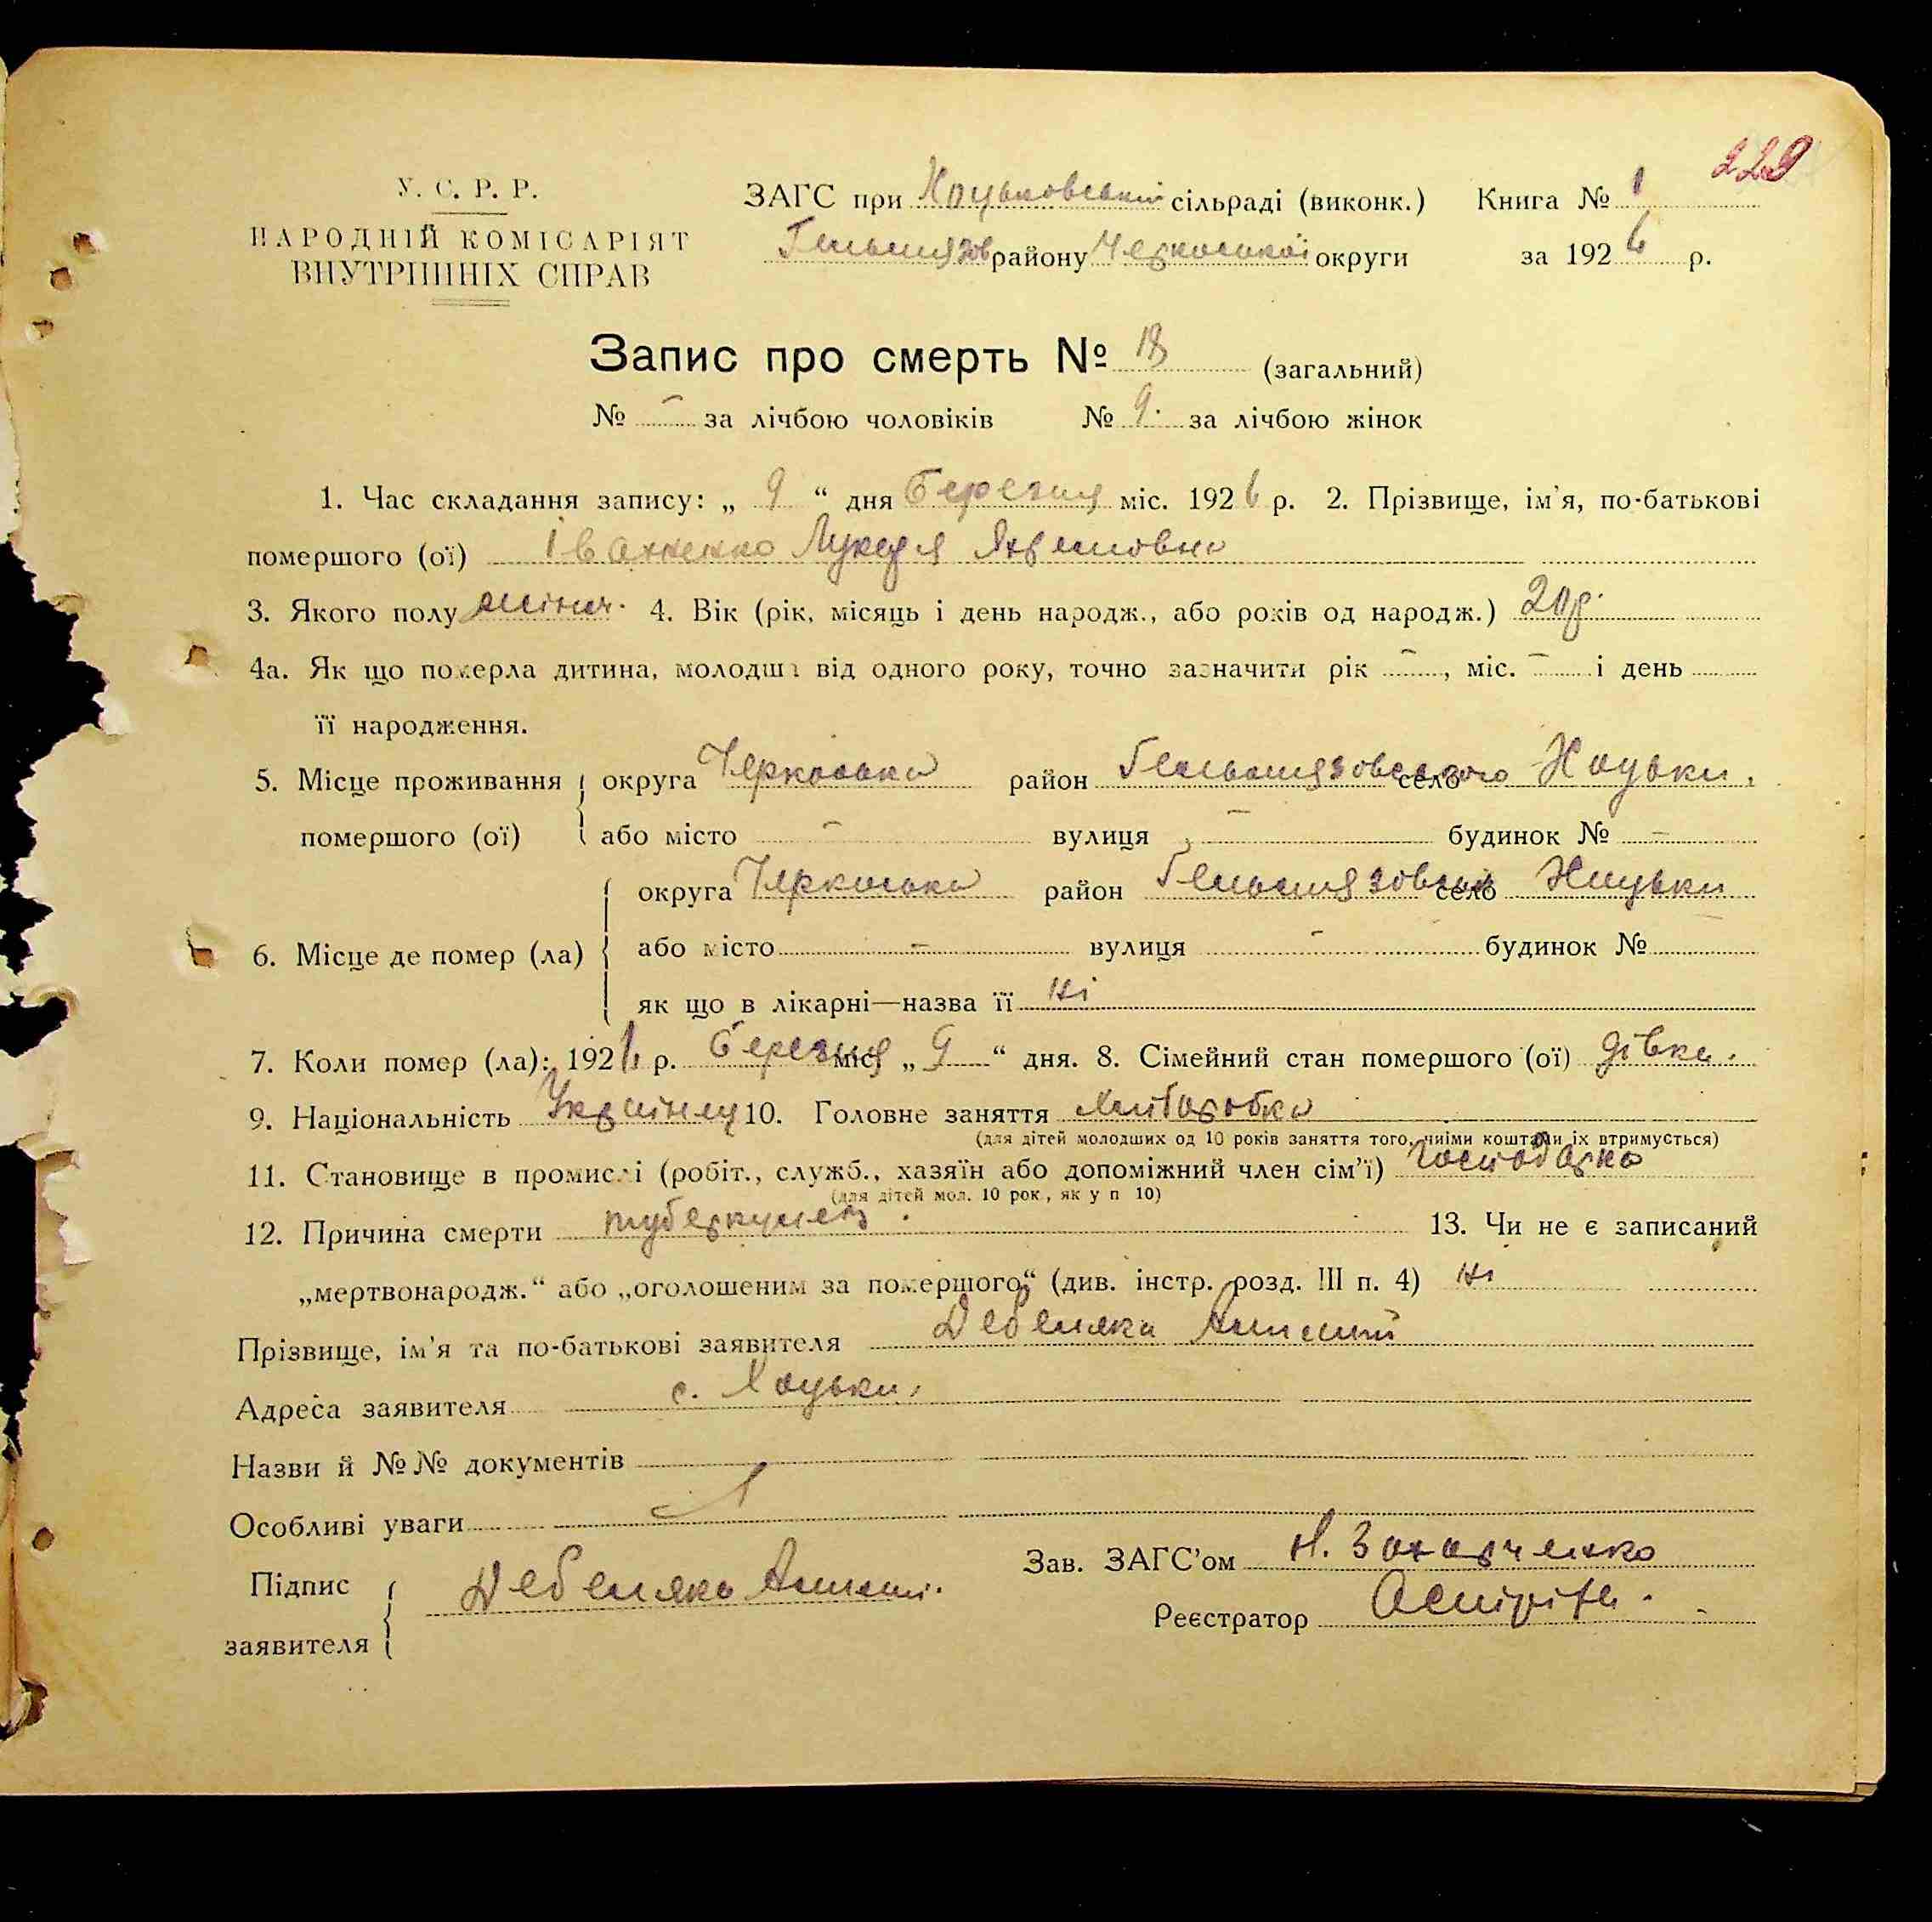 229
У. С. Р. Р.
НАРОДНІЙ КОМІСАРІЯТ
ВНУТРІШНІХ СПРАВ
ЗАГС при Хоцьковській сільраді (виконк.) Книга № 1
Гельмязов району Черкаської округи за 1926 р.
Запис про смерть № 18 (загальний)
№ - за лічбою чоловіків № 9. за лічбою жінок
1. Час складання запису: „ 9 “ дня березня міс. 1926 р. 2. Прізвище, ім'я, по-батькові
помершого (ої) Іваненко Лукеря
3. Якого полу жіноч. 4. Вік (рік, місяць і день народж., або років од народж.) 20р.
4а. Як що померла дитина, молодша від одного року, точно зазначити рік -, міс. - і день
її народження.
5. Місце проживання округа Черкаська район Гельмязовського село Хоцьки.
помершого (ої) або місто - вулиця - будинок № -
6. Місце де помер (ла) округа Черкаська район Гельмязовский село Хоцьки
або місто - вулиця - будинок №
як що в лікарні—назва її ні
7. Коли помер (ла): 1926 р. березня міс. „ 9 “ дня. 8. Сімейний стан помершого (ої) дівка.
9. Національність Українка 10. Головне заняття хліборобка
(для дітей молодших од 10 років заняття того, чиїми коштами їх втримується)
11. Становище в промислі (робіт., служб., хазяїн або допоміжний член сім'ї) господарка
(для дітей мол. 10 рок., як у п 10)
12. Причина смерти туберкульоз. 13. Чи не є записаний
„мертвонародж.“ або „оголошеним за помершого“ (див. інстр. розд. III п. 4) ні
Прізвище, ім'я та по-батькові заявителя
Адреса заявителя с. Хоцьки.
Назви й №№ документів
Особливі уваги
Підпис
заявителя
Зав. ЗАГС'ом Н. Захарченко
Реєстратор